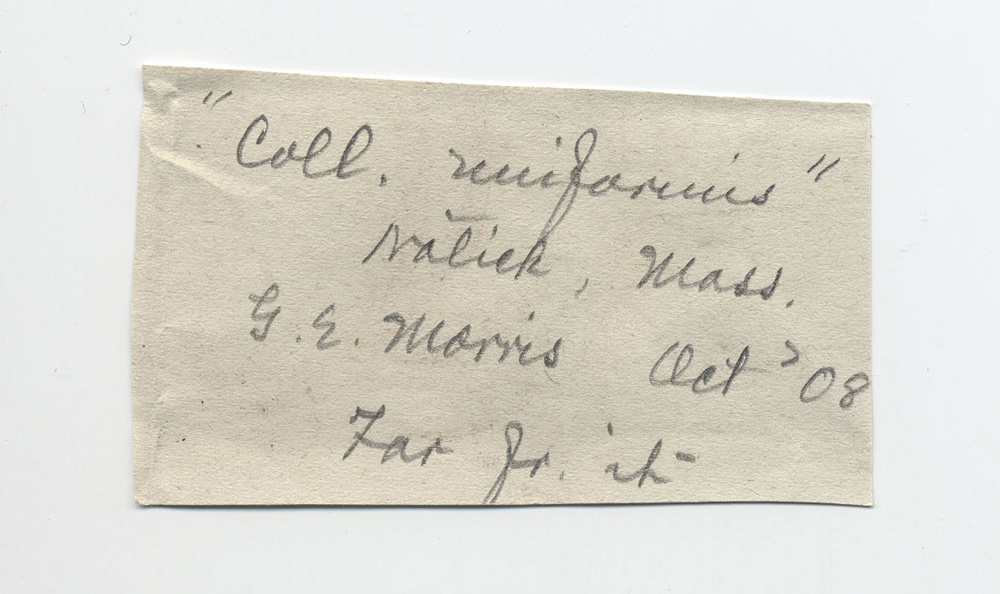 "Coll. uniformis"
Natick, Mass.
G. E. Morris Oct '08
Far fr. it